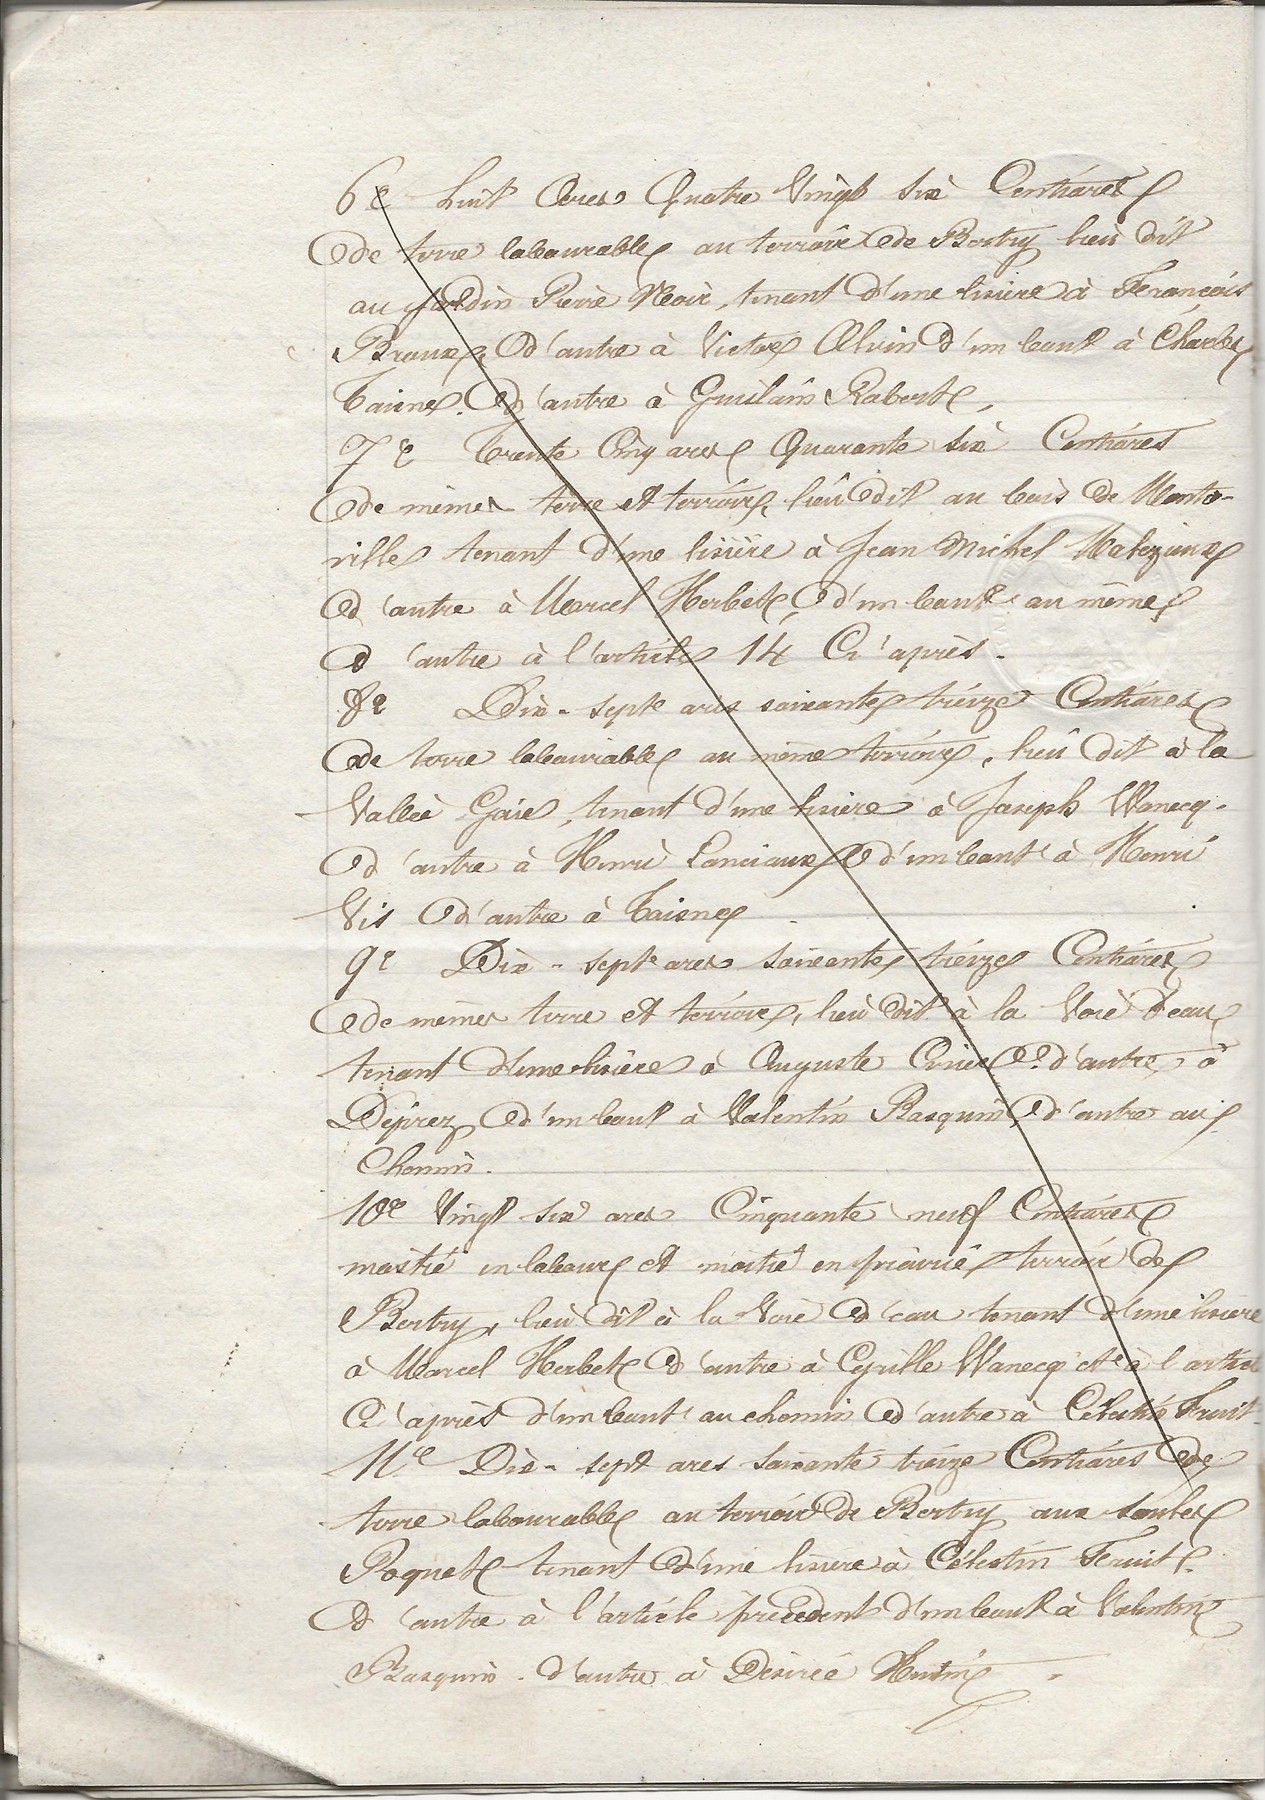 6e huit Ares Quatre Vingt six Centiares
de terre labourable au terroir de Bertry lieu dit
au Jardin Pierre Noir, tenant d'une lisière à François
Braux, d'autre à Victor Alvin d'un bout à Charles
Taisne, d'autre à Guislain Robert,
7e Trente Cinq ares Quarante six Centiares
de même terre et terroir, lieu dit au bois de Monto-
ville tenant d'une lisière à Jean Michel Malézieux
d'autre à Marcel Herbet, d'un bout au même
d'autre à l'article 14 Ci après.
8e Dix-sept ares soixante treize Centiares
de terre labourable au même terroir, lieu dit à la
Vallée Gaie, tenant d'une lisière à Joseph Wanecq.
d'autre à Henri Lanciaux d'un bout à Henri
Vis d'autre à Taisne
9e Dix-sept ares soixante treize Centiares
de même terre et terroir, lieu dit à la Voie d'eau
tenant d'une lisière à Auguste d'autre à
Déprez d'un bout à Valentin Basquin, d'autre au
Chemin.
10e Vingt six ares Cinquante neuf Centiares
moitié en labour et moitié en prairie terroir de
Bertry, lieu dit à la Voie d'eau tenant d'une lisière
à Marcel Herbet d'autre à Cyrille Wanecq et à l'article
Ci après d'un bout au chemin d'autre à Célestin Fruit.
11e Dix-sept ares soixante treize Centiares de
terre labourable au terroir de Bertry aux saules
Poquet tenant d'une lisière à Célestin Fruit.
d'autre à l'article précédent d'un bout à Valentin
Basquin. d'autre à Désiré Hutin